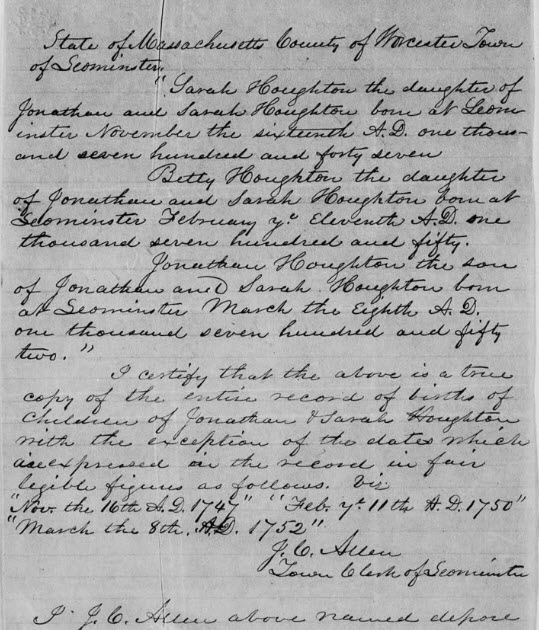 State of Massachusetts County of Worcester Town
of Leominster.
"Sarah Houghton the daughter of
Jonathan and Sarah Houghton born at Leom-
inster November the sixteenth A.D. one thous-
and seven hundred and forty seven
Betty Houghton the daughter
of Jonathan and Sarah Houghton born at
Leominster February yᵉ Eleventh A.D. one
thousand seven hundred and fifty.
Jonathan Houghton the son
of Jonathan and Sarah Houghton born
at Leominster March the Eighth A.D.
one thousand seven hundred and fifty
two."
I certify that the above is a true
copy of the entire record of births of
children of Jonathan & Sarah Houghton
with the exception of the dates which
are expressed in the record in fair
legible figures as follows. Viz
"Nov. the 16th A.D. 1747" "Feb. yᵉ 11th A.D. 1750"
"March the 8th. A.D. 1752"
J. C. Allen
Town Clerk of Leominster
I J. C. Allen above named depose